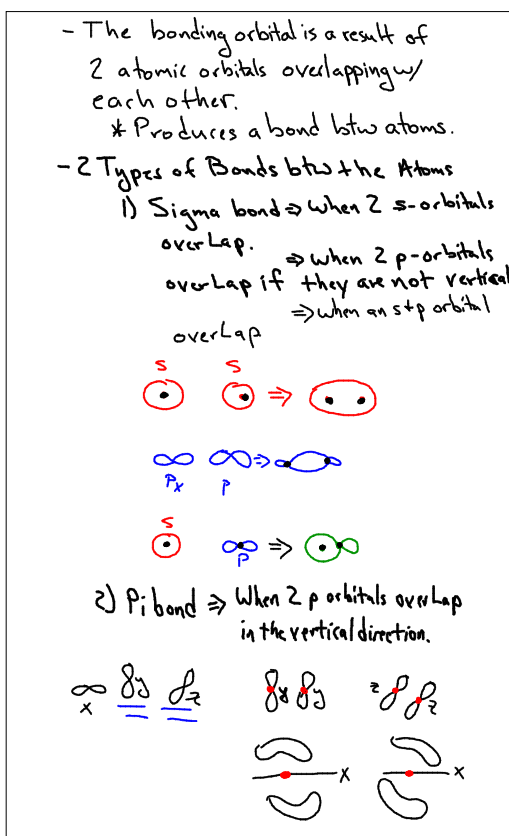 - The bonding orbital is a result of
2 atomic orbitals overlapping w/
each other.
* Produces a bond btw atoms.
- 2 Types of Bonds btw the Atoms
1) Sigma bond ⇒ when 2 s-orbitals
overLap.
⇒ when 2 p-orbitals
overLap if they are not vertical
⇒ when an s+p orbital
overLap
S S ⇒
⇒
Px P
S
⇒
P
2) Pi bond ⇒ When 2 p orbitals overLap
in the vertical direction.
x y z
y y z z
x x